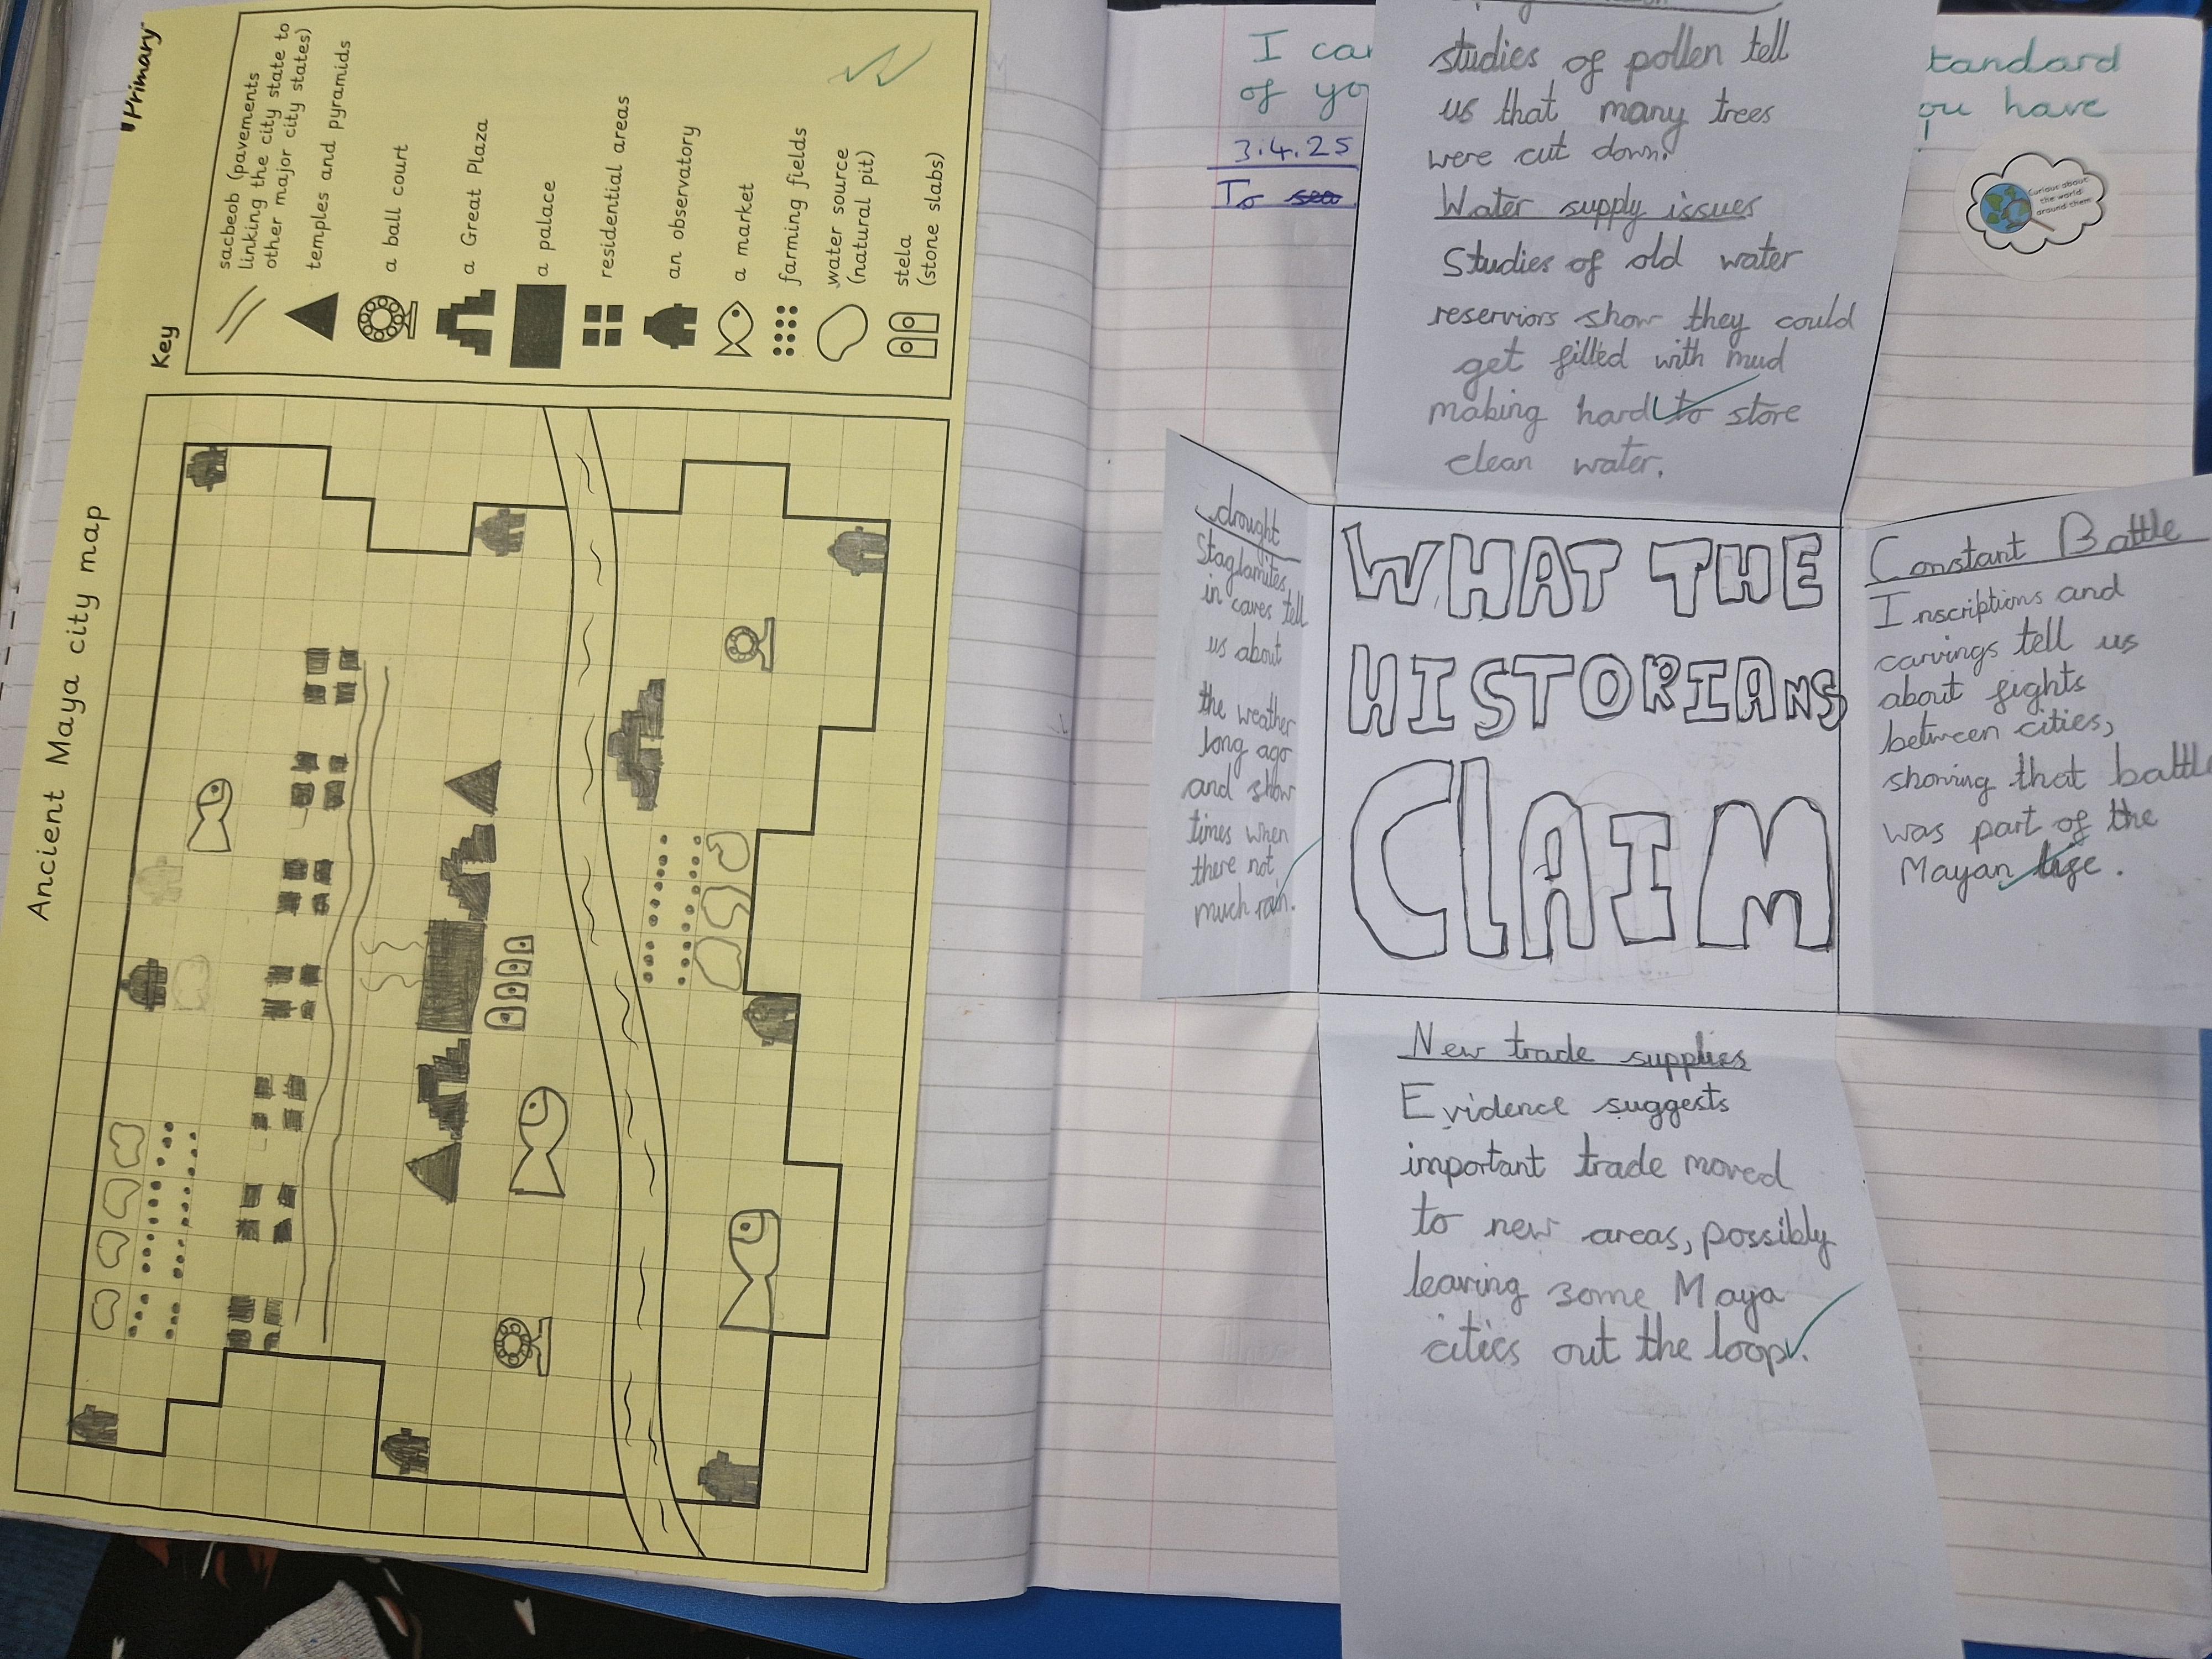 Ancient Maya city map
Primary
Key
sacbeob (pavements
linking the city state to
other major city states)
temples and pyramids
a ball court
a Great Plaza
a palace
residential areas
an observatory
a market
farming fields
water source
(natural pit)
stela
(stone slabs)
I can
of yo
tandard
ou have
3.4.25
To
Curious about
the world
around them
studies of pollen tell
us that many trees
were cut down.
Water supply issues
Studies of old water
reserviors show they could
get filled with mud
making hard to store
clean water.
drought
Staglamites
in caves tell
us about
the weather
long ago
and show
times when
there not
much rain.
WHAT THE
HISTORIANS
CLAIM
Constant Battle
Inscriptions and
carvings tell us
about fights
between cities,
showing that battle
was part of the
Mayan
New trade supplies
Evidence suggests
important trade moved
to new areas, possibly
leaving some Maya
cities out the loop.